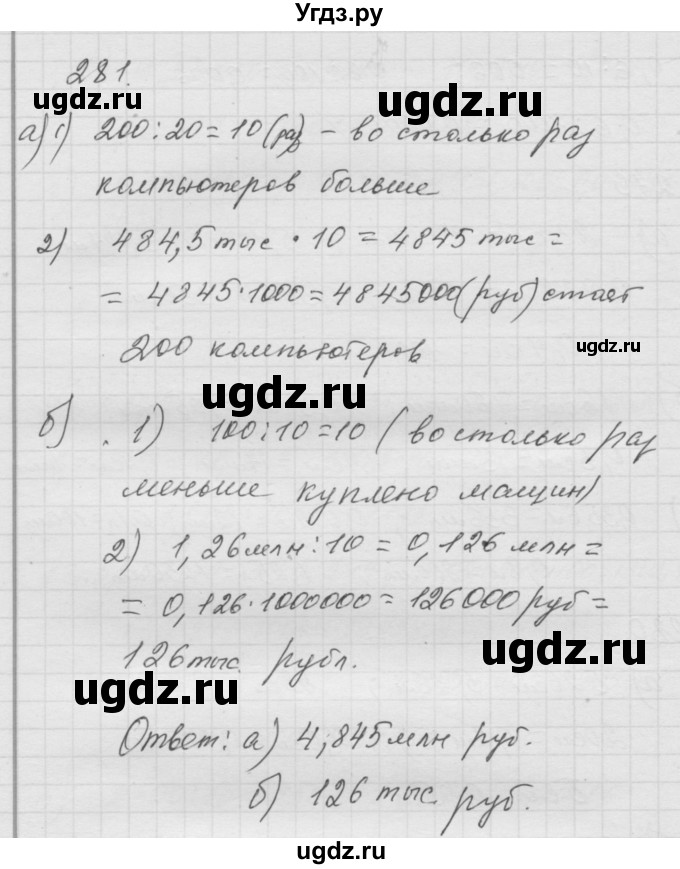 Угдз.ру
281.
а) 1) 200 : 20 = 10 (раз) – во столько раз
компьютеров больше
2) 484,5 тыс · 10 = 4845 тыс =
= 4845 · 1000 = 4845000 (руб) стоят
200 компьютеров
б) . 1) 100 : 10 = 10 ( во столько раз
меньше куплено машин)
2) 1,26 млн : 10 = 0,126 млн =
= 0,126 · 1000000 = 126000 руб =
126 тыс. рубл.
Ответ: а) 4,845 млн руб.
б) 126 тыс. руб.
ugdz.ru
ugdz.ru
ugdz.ru
ugdz.ru
ugdz.ru
ugdz.ru
ugdz.ru
ugdz.ru